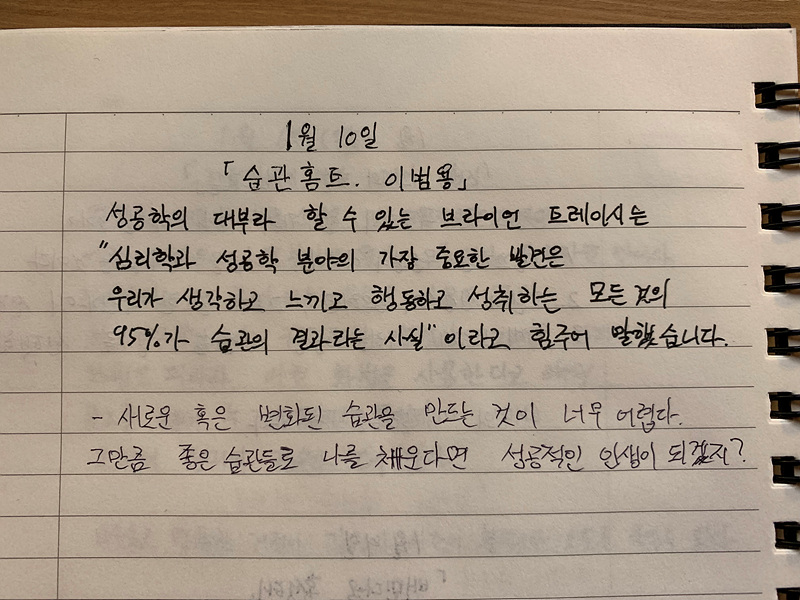 1월 10일
「습관홈트. 이범용」
성공학의 대부라 할 수 있는 브라이언 트레이시는
"심리학과 성공학 분야의 가장 중요한 발견은
우리가 생각하고 느끼고 행동하고 성취하는 모든 것의
95%가 습관의 결과라는 사실"이라고 힘주어 말했습니다.
- 새로운 혹은 변화된 습관을 만드는 것이 너무 어렵다.
그만큼 좋은 습관들로 나를 채운다면 성공적인 인생이 되겠지?